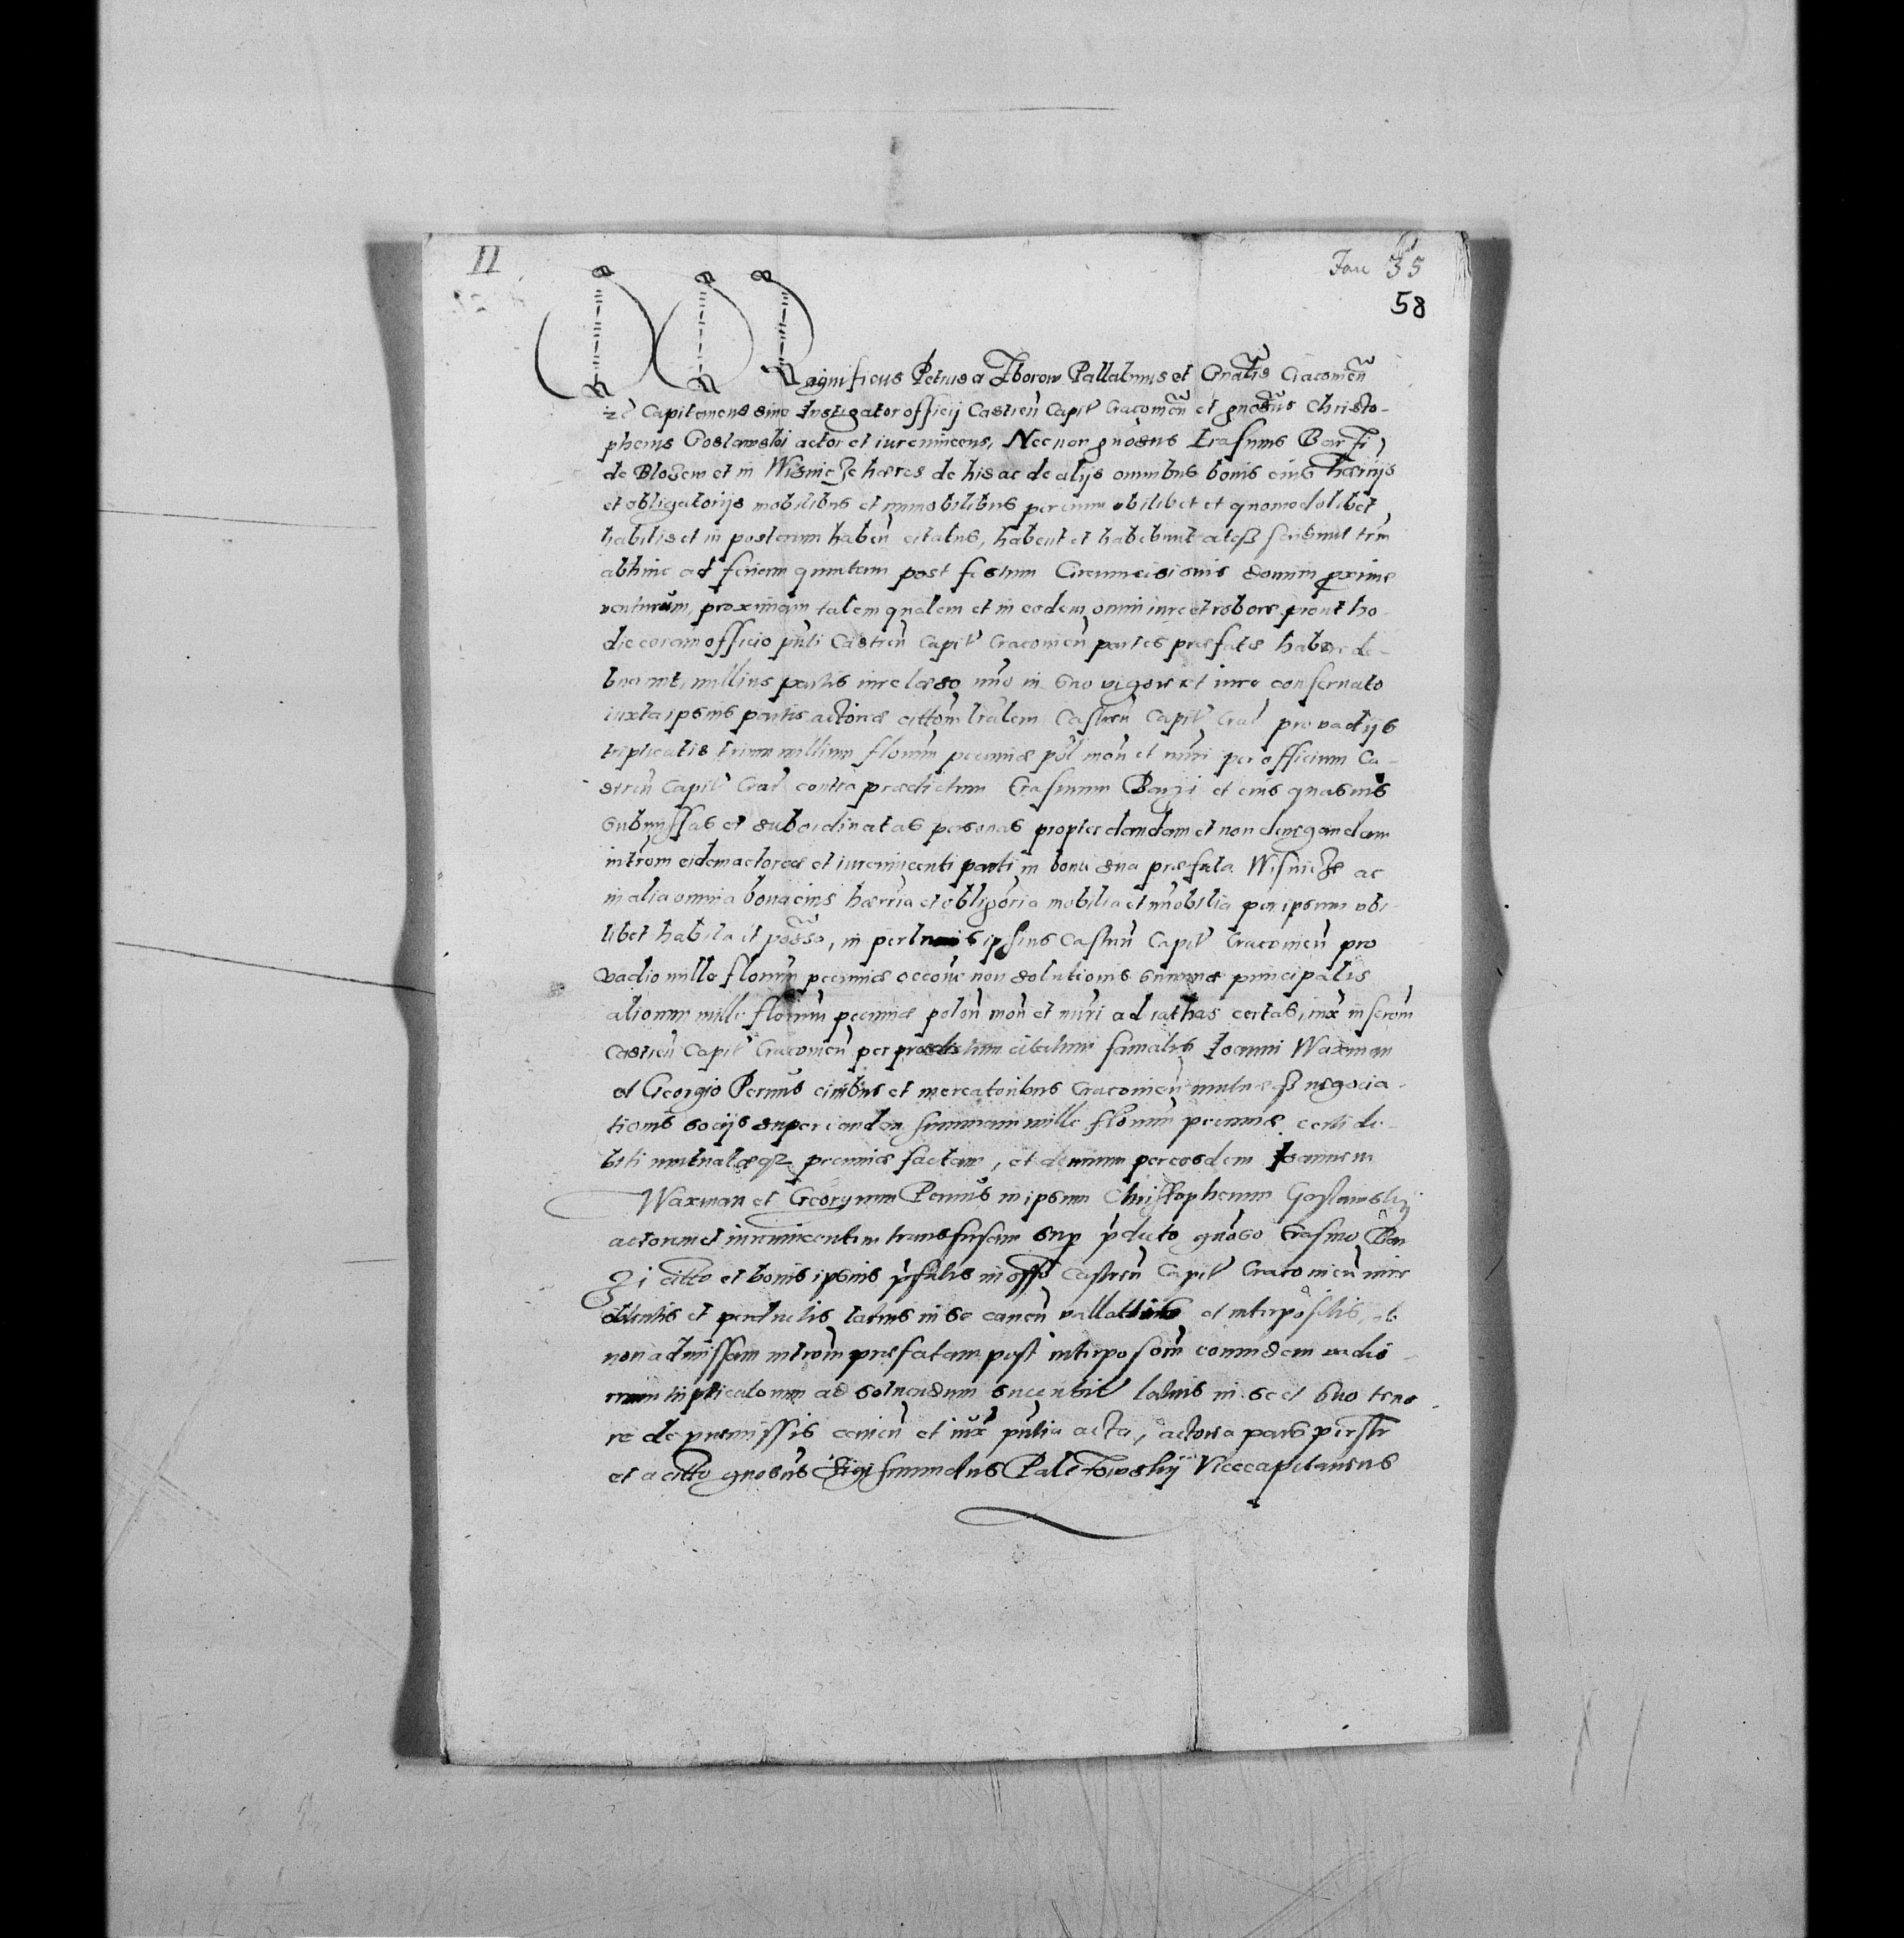 II
Fau 35
58
Magnificus Petrus a Zborow Pallatinus et Gnalis Cracovien
Capitaneus sive Instigator officij Castren Capit Cracovien et gnosus Christo-
phorus Goslawski actor et iurevincens, Necnon gnosus Erasmus Barzi,
de Blozew et in Wisnicze hæres de his ac de alijs omnibus bonis eius hærrijs
et obligatorijs mobilibus et immobilibus per eum ubilibet et quomodolibet
habitis et in posterum haben citatus, habent et habebunt trm
abhinc ad feriam quintam post festum Circumcisionis domini proxime
venturum, proximam talem qualem et in eodem omni iure et robore prout ho-
die coram officio pnti Castren Capit Cracovien partes præfatæ habere de-
buerunt, nullius partis iure læso imo in suo vigore et iure conservato
iuxta ipsius partis actoreæ cittom lralem Castren Capit Crac pro vadijs
triplicatis trium millium florum pecuniæ pol mon et nuri per officium Ca-
stren Capit Crac contra prædictum Erasmum Barzi et eius quasvis
submissas et subordinatas personas propter dandam et non denegandam
introm eidem actoreæ et iurevincenti parti in bona sua præfata Wisnicze ac
in alia omnia bona eius hærria et obligoria mobilia et immobilia per ipsum ubi-
libet habita et posso, in pertnciis ipsius Castren Capit Cracovien pro
vadio mille florum pecuniæ occone non solutionis summæ principalis
aliorum mille florum pecuniæ polon mon et nuri ad rathas certas, iux inscrom
Castren Capit Cracovien per prædictum citatum famatis Ioanni Waxman
et Georgio Pernus civibus et mercatoribus Cracovien mutuæ negocia-
tionis socijs super eandem summam mille florum pecuniæ certi de-
biti mutuatæq pecuniæ factam, et demum per eosdem Ioannem
Waxman et Georgium Pernus in ipsum Christophorum Goslawskij
actorem et iurevincentem transfusam sup pdicto gnoso Erasmo Bar
zi citto et bonis ipsius pfatis in offo Castren Capit Cracovien iure
obtentis et perductis latius in se canen vallatis et interpositis, ob
non admissam introm præfatam post interposom eorundem vadio
rum triplicatorum ad solvendum succubit latius in se et suo teno-
re de premissis canen et iux pntia acta, actorea pars per
et a citto gnosus Sigismundus Paleczowskij Vicecapitaneus